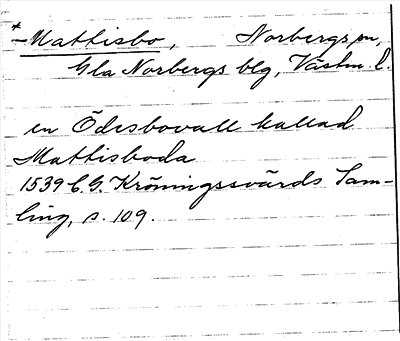 *-Mattisbo, Norbergs sn,
Gla Norbergs blg, Västm. l.
en Ödesbovall kallad
Mattisboda
1539 C.G. Kröningssvärds Sam-
ling, s. 109.